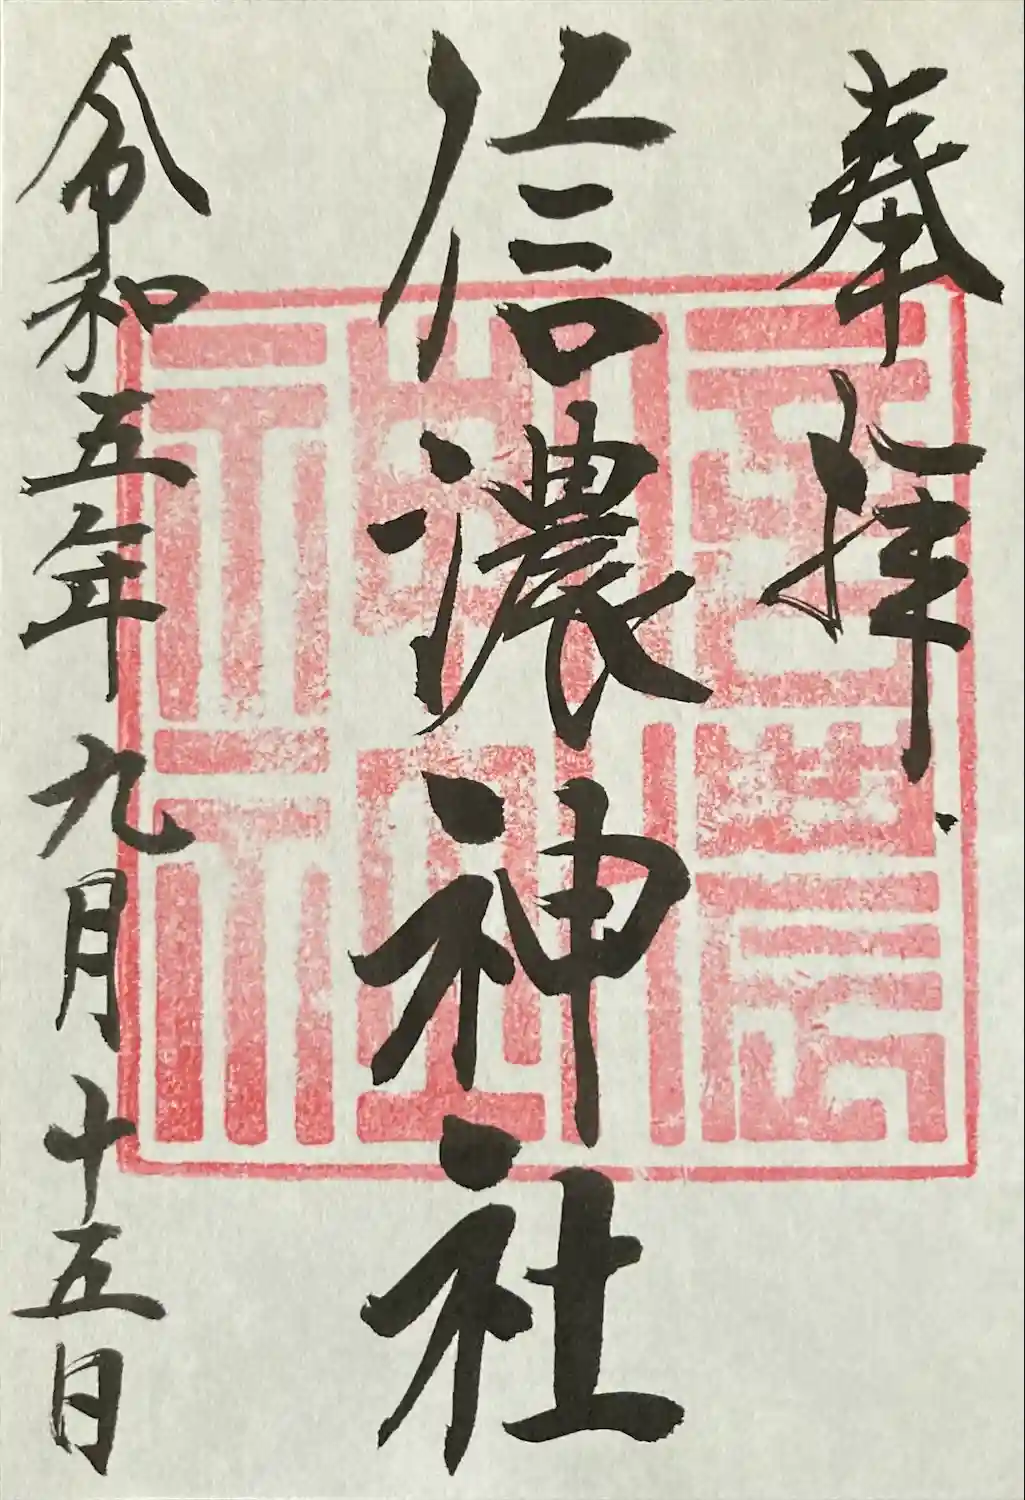 奉拝
信濃神社
令和五年九月十五日